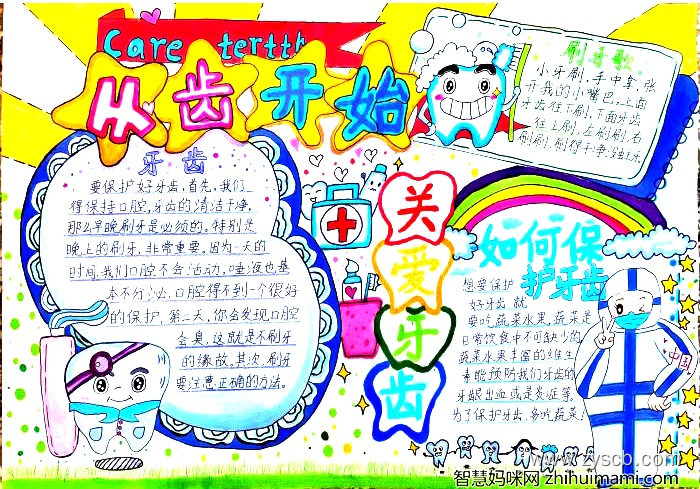 Care tertth
牙齿开始
刷牙歌
小牙刷，手中拿，张
开我的小嘴巴。上面
牙齿往下刷，下面牙齿
往上刷，左刷刷，右
刷刷，刷得干净
牙齿
要保护好牙齿，首先，我们
得保持口腔，牙齿的清洁干净，
那么早晚刷牙是必须的。特别是
晚上的刷牙，非常重要。因为一天的
时间，我们口腔不会活动，唾液也基
本不分泌，口腔得不到一个很好
的保护，第二天，你会发现口腔
会臭，这就是不刷牙
的缘故。其次，刷牙
要注意正确的方法。
关
爱
牙
齿
如何保
护牙齿
想要保护
好牙齿 就
要吃蔬菜水果，蔬菜是
日常饮食中不可缺少的
蔬菜水果丰富的维生
素能预防我们牙齿的
牙龈出血或是炎症等，
为了保护牙齿，多吃蔬菜！
中国
www.zyscb.com
智慧妈咪网 zhihuimami.com